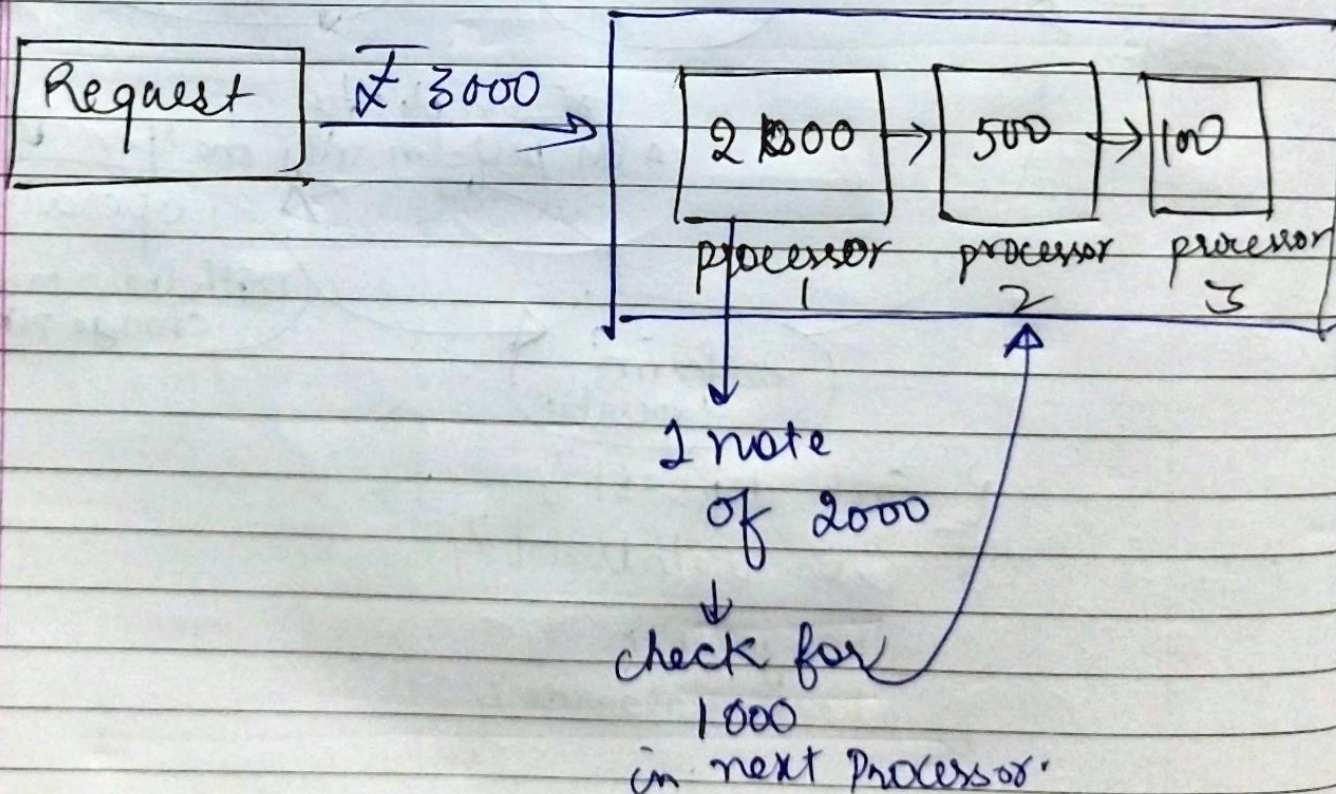 Request
₹ 3000
2000 → 500 → 100
processor processor processor
1 2 3
1 note
of 2000
↓
check for
1000
in next Processor.